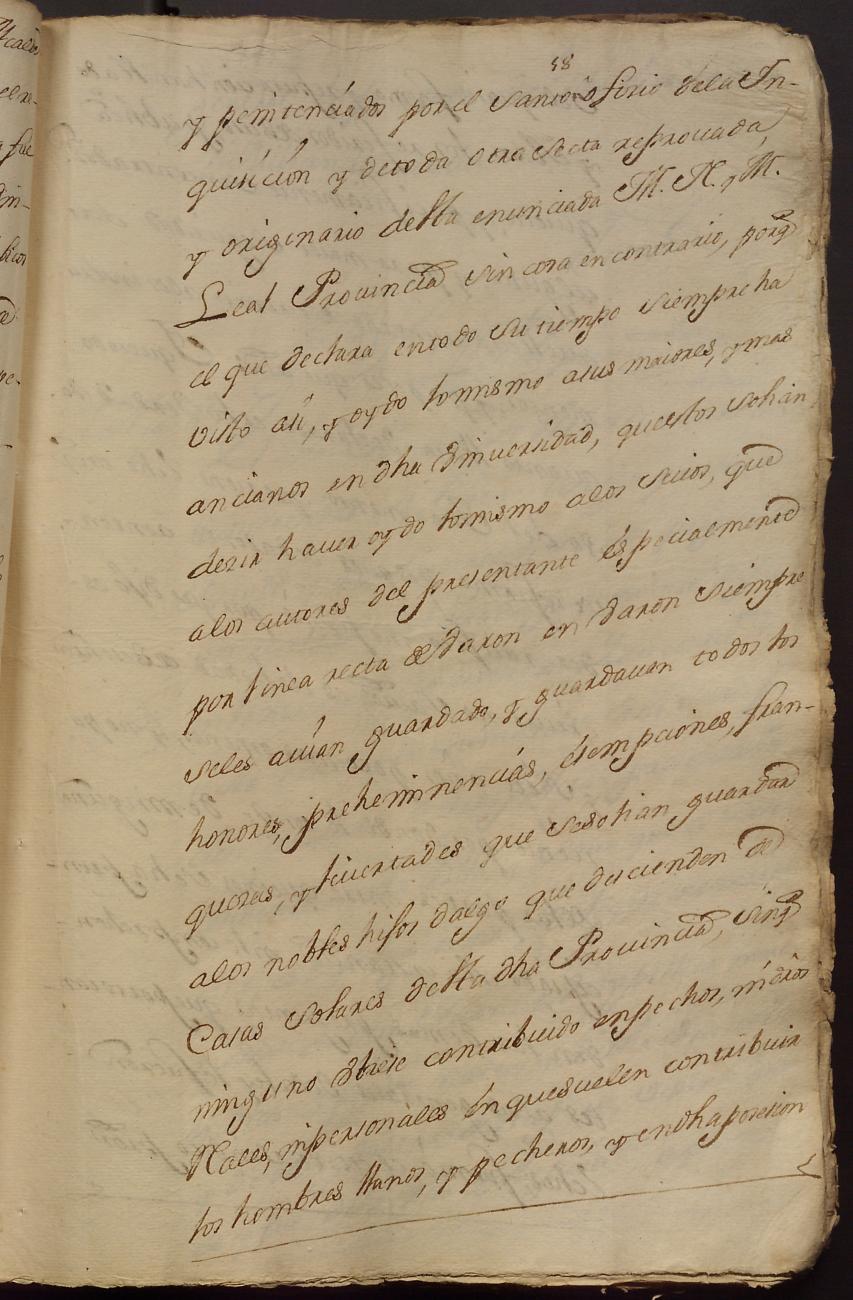 58
y penitenciados por el Santo ofisio dela In-
quisición y detoda otra Secta reprovada,
y originario desta enunciada M. N. y M.
Leal Provincia sin cosa encontrario, porq
el que declara entodo su tiempo siempre ha
visto asi, y oydo lo mismo asus maiores, y mas
ancianos en dha Vniversidad, questos solian
dezir haver oydo lomismo alos Suios, que
alos autores del presentante éspecialmente
por linea recta de Varon en Varon Siempre
seles avian guardado, y guardavan todos los
honores, preheminencias, ésempciones, fran-
quezas, y livertades que sesolian guardar
alos nobles hijos dalgo que descienden de
Casas Solares desta dha Provincia, sinq
ninguno Vbiese contribuido enpechos, nidros
Rales, nipersonales én quesuelen contribuir
los hombres llanos, y pecheros, y endhaposesion